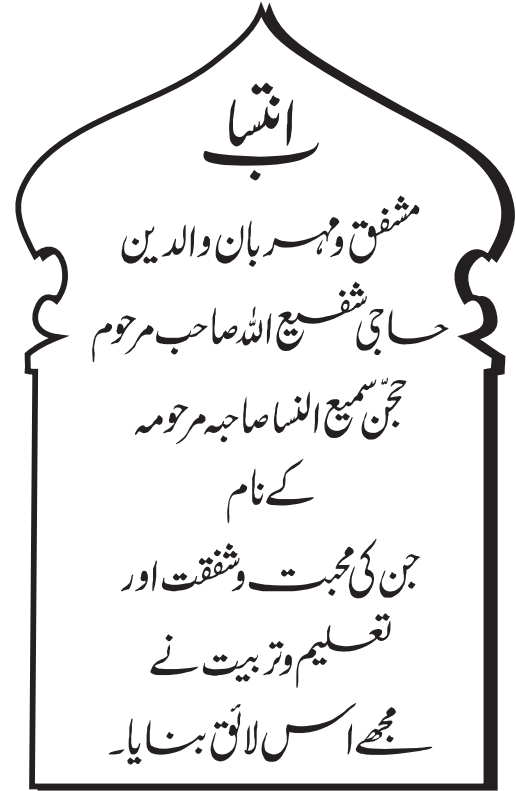 انتساب
مشفق ومہربان والدین
حاجی شفیع اللہ صاحب مرحوم
حجنّ سمیع النسا صاحبہ مرحومہ
کے نام
جن کی محبت وشفقت اور
تعلیم وتربیت نے
مجھے اس لائق بنایا۔